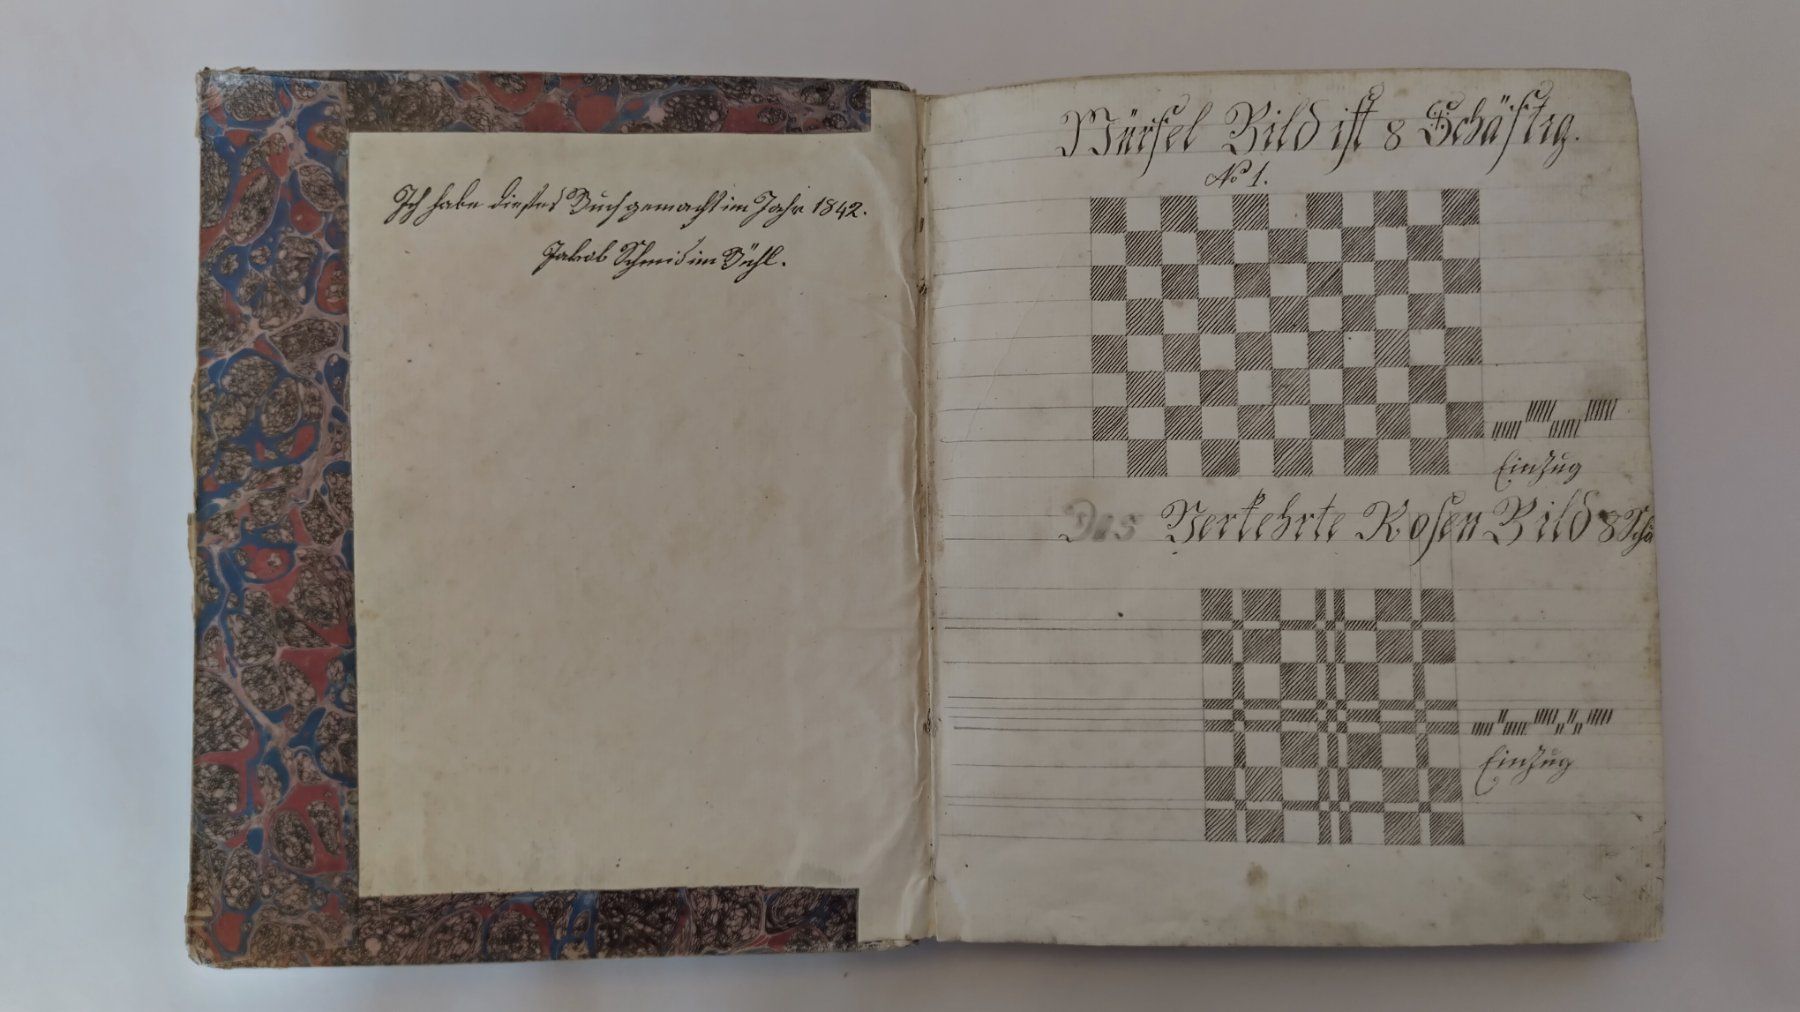 Ich habe dieses Buch gemacht im Jahr 1842.
Jakob Schmid im Bühl.
Würfel Bild ist 8 Schäftig.
No 1.
Einzug
Das Verkehrte Rosen Bild 8 Schä
Einzug